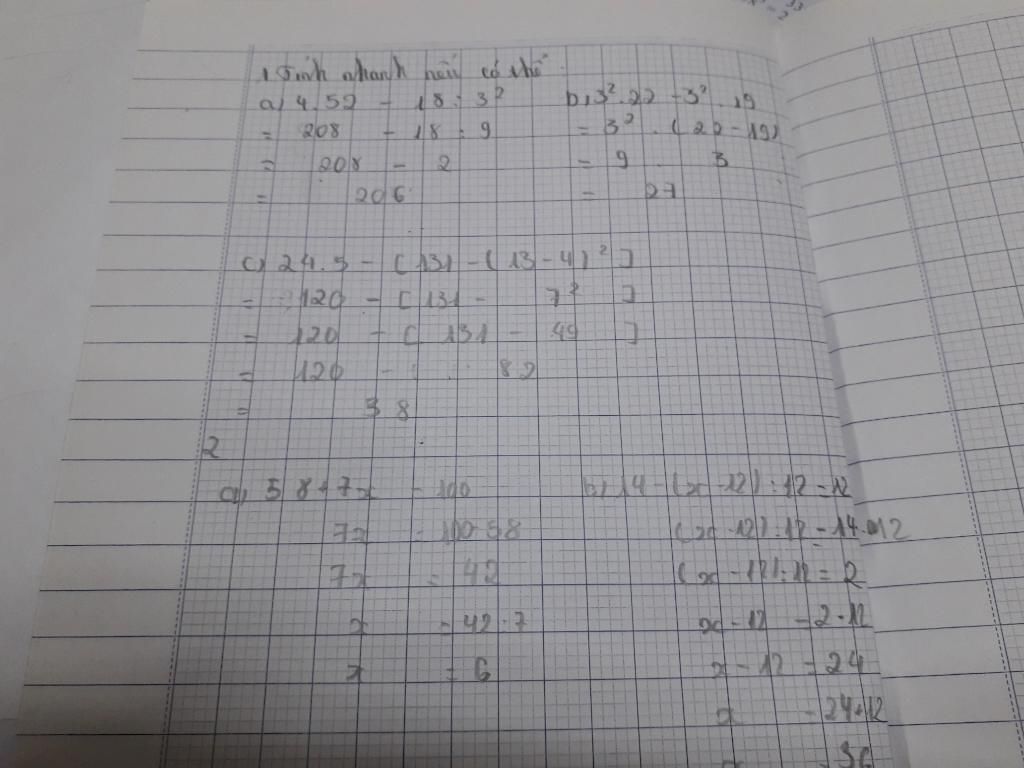 1 Tính nhanh nếu có thể.
a) 4.52 - 18 : 3² b) 3².22 - 3².19
= 208 - 18 : 9 = 3² . (22 - 19)
= 208 - 2 = 9 . 3
= 206 = 27
c) 24.5 - [131 - (13 - 4)²]
= 120 - [131 - 7²]
= 120 - [131 - 49]
= 120 - 82
= 38
2
a) 58 + 7x = 100 b) 14 - (x - 12) : 12 = 12
7x = 100 - 58 (x - 12) : 12 = 14 - 12
7x = 42 (x - 12) : 12 = 2
x = 42 : 7 x - 12 = 2 . 12
x = 6 x - 12 = 24
x = 24 + 12
x = 36